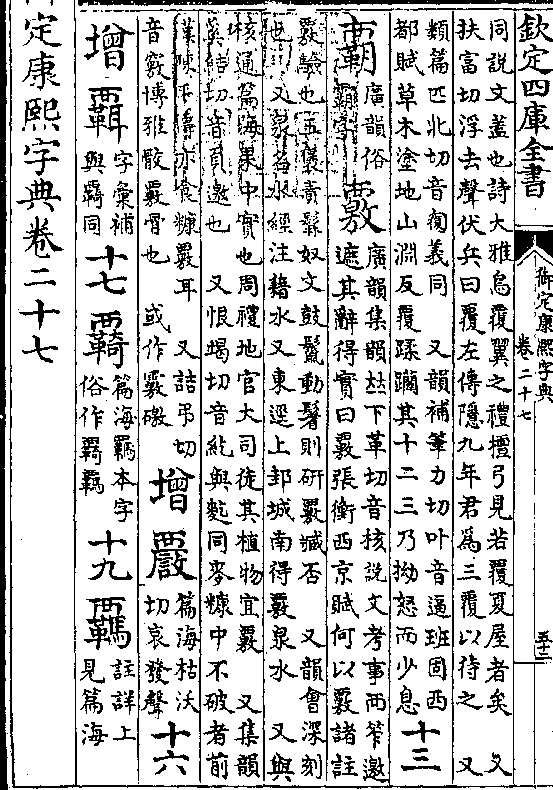 欽定四庫全書
御定康熙字典
卷二十七
五十三
同說文蓋也詩大雅鳥覆翼之禮檀弓見若覆夏屋者矣 又
扶富切浮去聲伏兵曰覆左傳隱九年君爲三覆以待之 又
類篇匹北切音匐義同 又韻補筆力切叶音逼班固西
都賦草木塗地山淵反覆蹂躪其十二三乃拗怒而少息
十三
覇
廣韻俗
霸字
覈
廣韻集韻𠀤下革切音核說文考事而笮邀
遮其辭得實曰覈張衡西京賦何以覈諸註
覈驗也王褒責髯奴文鼓鬐動鬣則研覈臧否 又韻會深刻
也 又縣名水經注籍水又東逕上邽城南得覈泉水 又與
核通篇海果中實也周禮地官大司徒其植物宜覈 又集韻
奚結切音頁邀也 又恨竭切音紇與麧同麥糠中不破者前
漢陳平傳亦食糠覈耳 又詰弔切
音竅博雅骹覈骨也 或作覈礉
增
篇海枯沃
切哀發聲
十六
增
字彙補
與羈同
十七
覉
篇海羈本字
俗作覉羈
十九
註詳上
見篇海
定康熙字典卷二十七